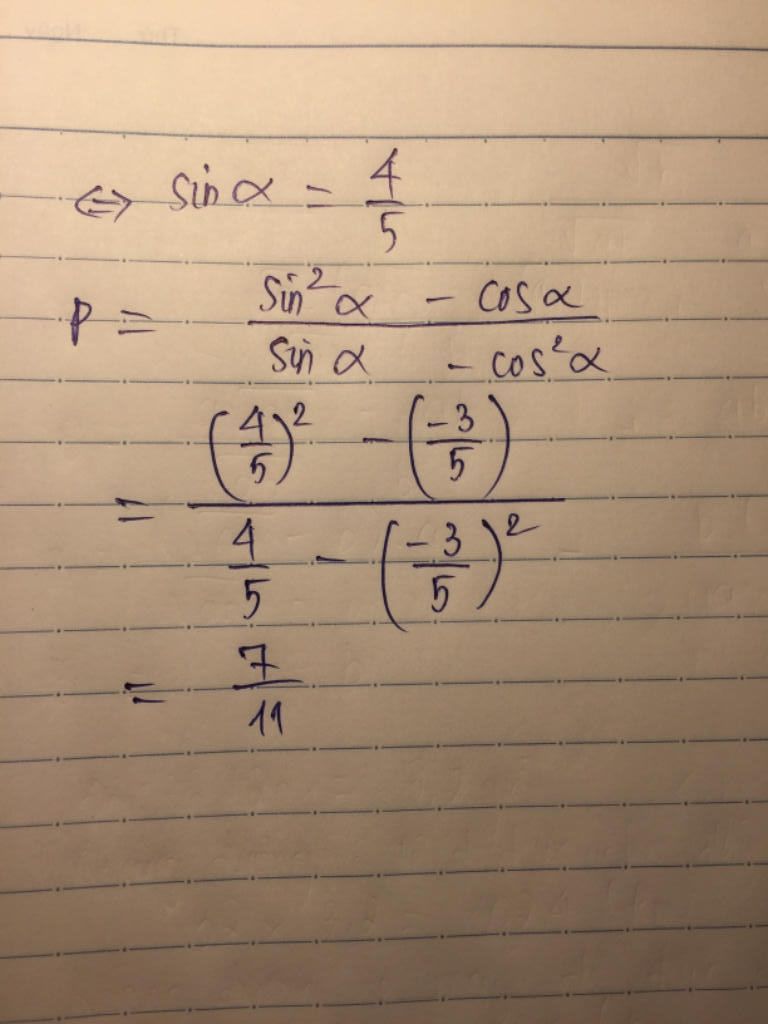 ⇔ sin α = 4/5
P = (sin² α - cos α)/(sin α - cos² α)
= ((4/5)² - (-3/5))/(4/5 - (-3/5)²)
= 7/11